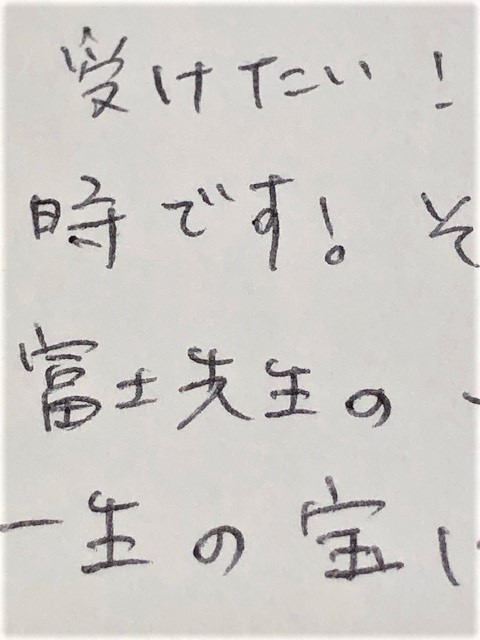 受けたい!
時です! そ
富士先生の
一生の宝